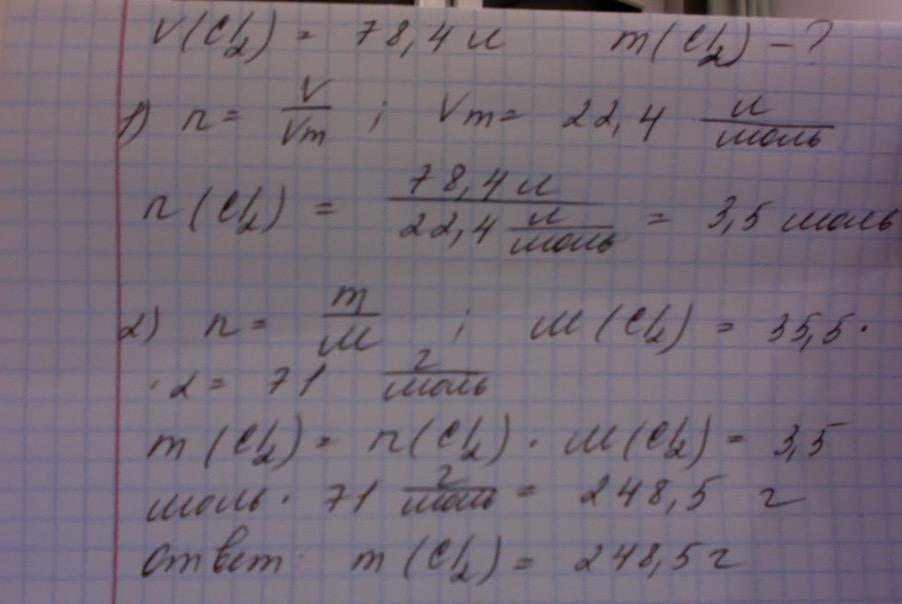 V(Cl₂) = 78,4 л m(Cl₂) - ?
1) n = V/Vm ; Vm = 22,4 л/моль
n(Cl₂) = 78,4 л / 22,4 л/моль = 3,5 моль
2) n = m/M ; M(Cl₂) = 35,5 ·
· 2 = 71 г/моль
m(Cl₂) = n(Cl₂) · M(Cl₂) = 3,5
моль · 71 г/моль = 248,5 г
Ответ: m(Cl₂) = 248,5 г